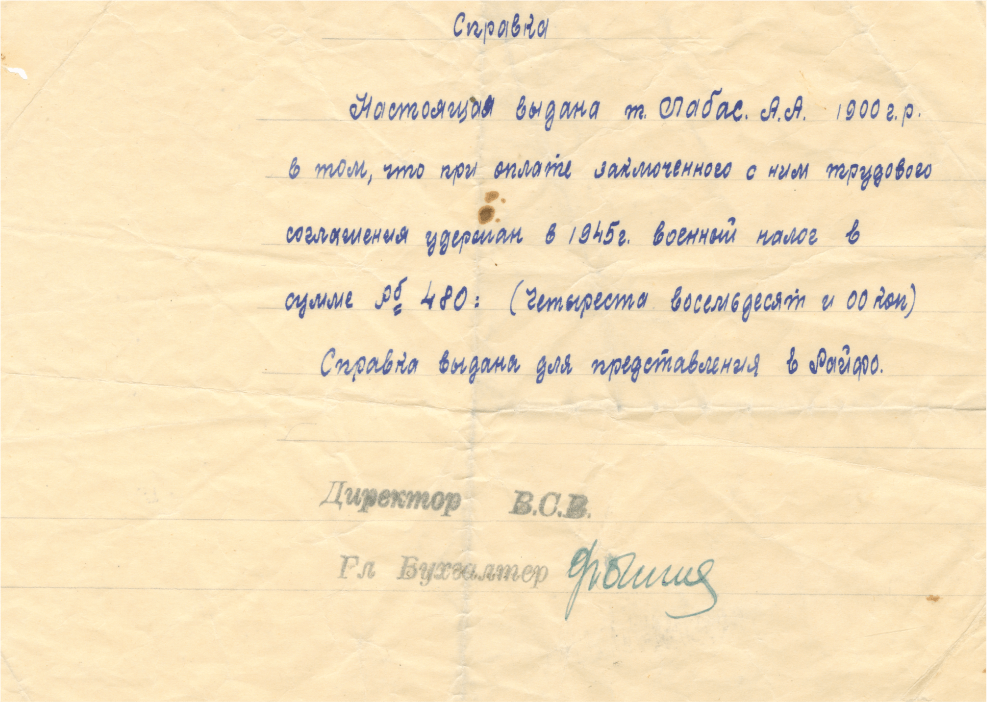 Справка
Настоящая выдана т. Лабас. А.А. 1900 г.р.
в том, что при оплате заключенного с ним трудового
соглашения удержан в 1945г. военный налог в
сумме Рб 480= (Четыреста восемьдесят и 00 коп)
Справка выдана для представления в Райфо.
Директор В.С.В.
Гл Бухгалтер